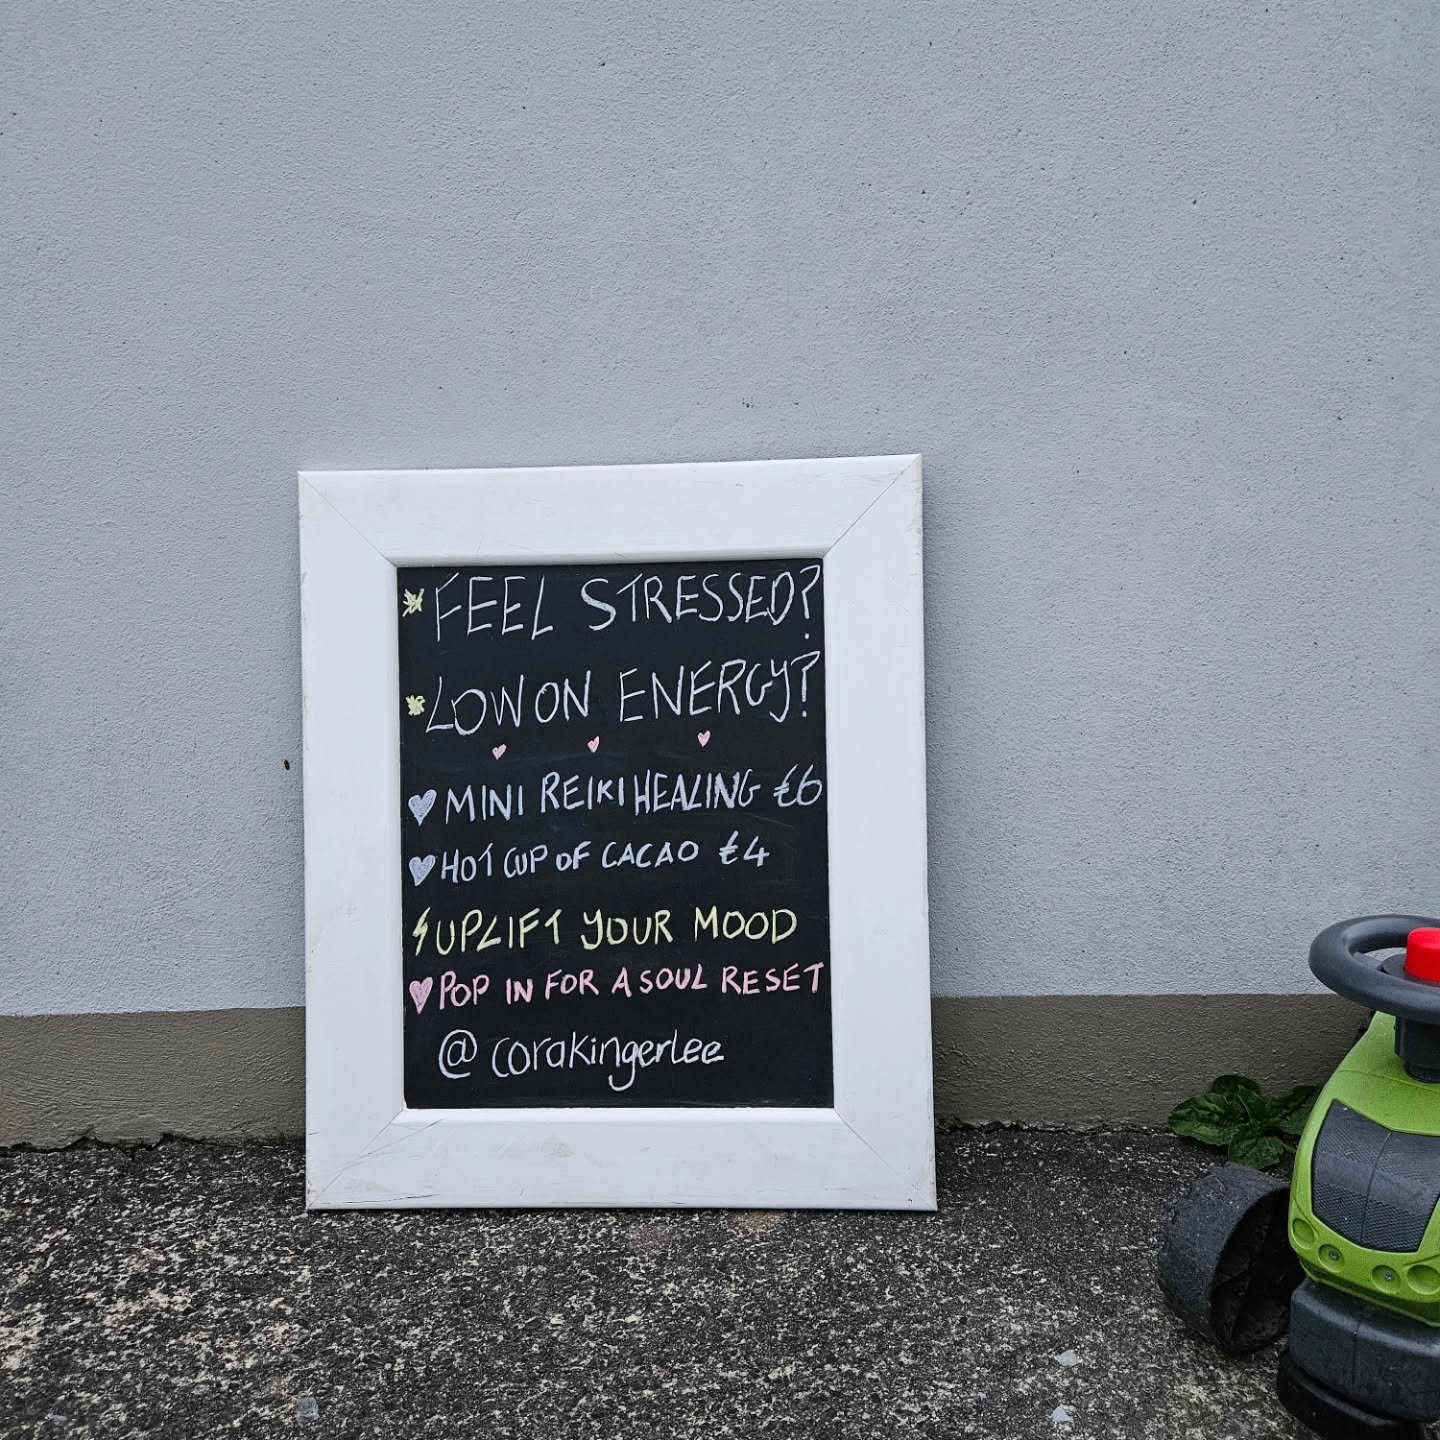 FEEL STRESSED?
LOW ON ENERGY?
MINI REIKI HEALING €6
HOT CUP OF CACAO €4
UPLIFT YOUR MOOD
POP IN FOR A SOUL RESET
@corakingerlee